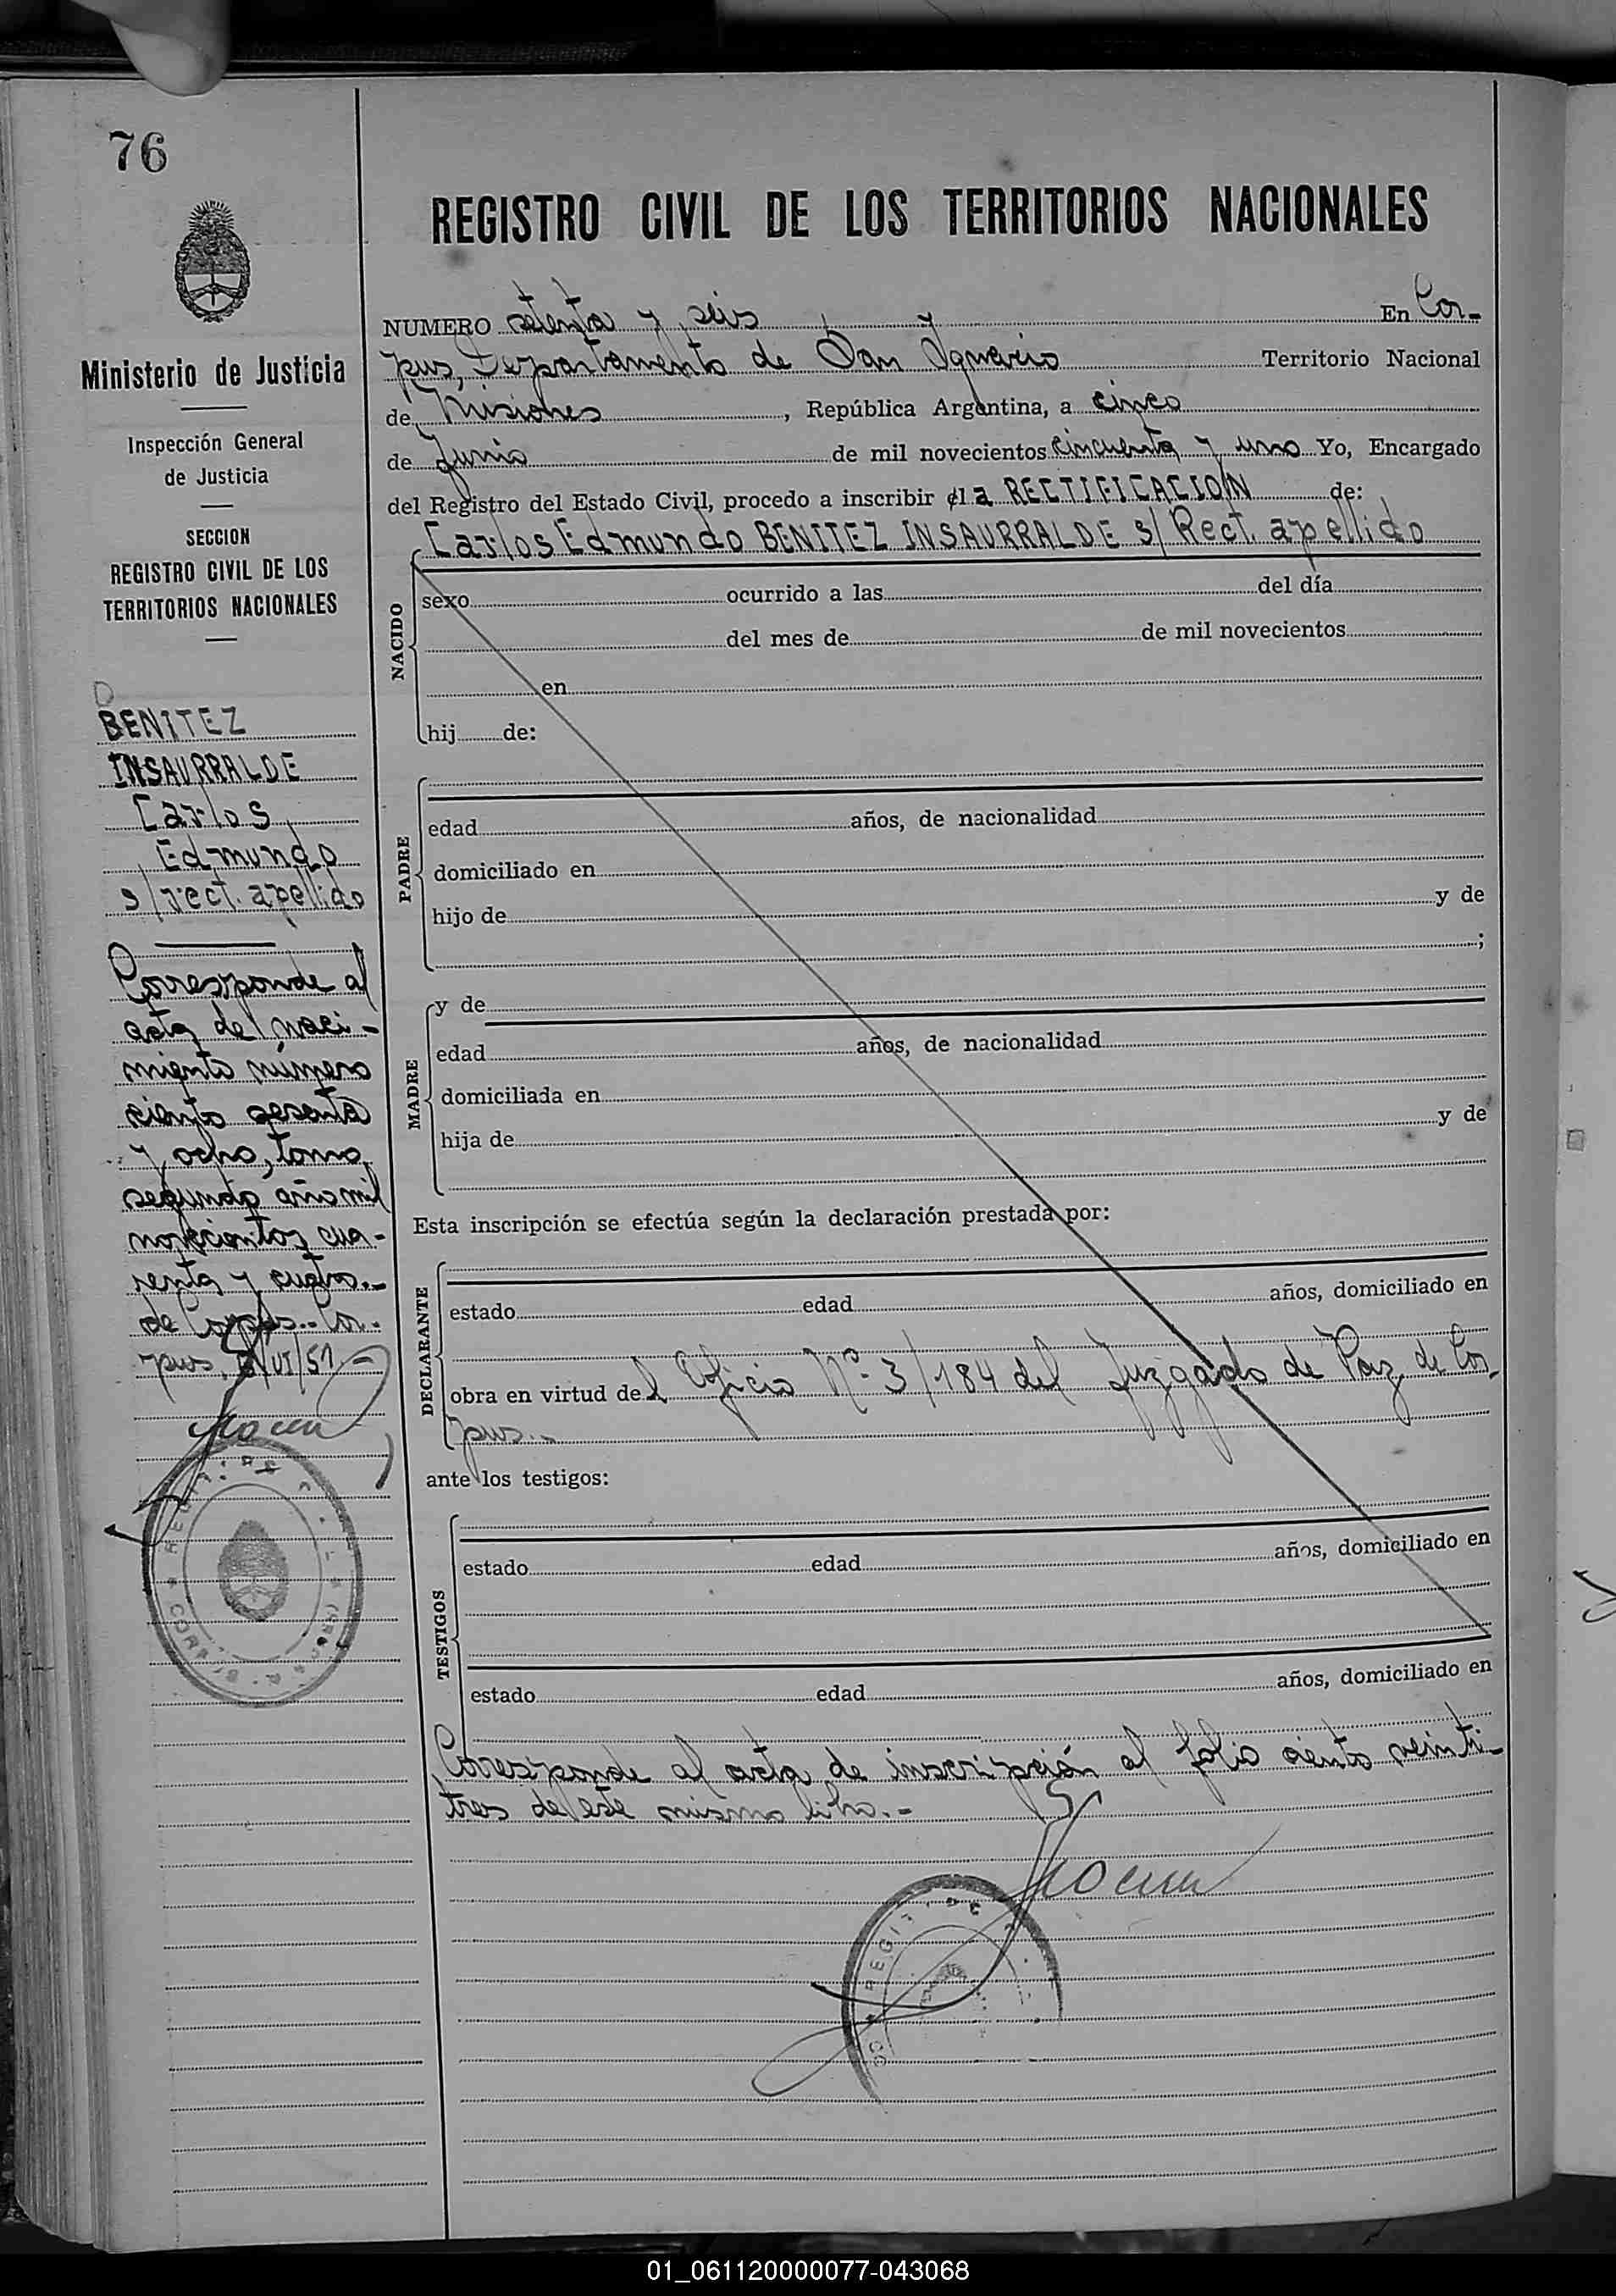 76
Ministerio de Justicia
Inspección General
de Justicia
SECCION
REGISTRO CIVIL DE LOS
TERRITORIOS NACIONALES
BENITEZ
INSAURRALDE
Carlos
Edmundo
s/rect. apellido
Corresponde al
acta de naci-
miento número
ciento sesenta
y ocho, tomo
segundo año mil
novecientos cua-
renta y cuatro.-
de Corpus.- Cor-
pus, /VI/51.-
REGISTRO CIVIL DE LOS TERRITORIOS NACIONALES
NUMERO setenta y seis En Cor-
pus, Departamento de San Ignacio Territorio Nacional
de Misiones, República Argentina, a cinco
de Junio de mil novecientos cincuenta y uno Yo, Encargado
del Registro del Estado Civil, procedo a inscribir el a RECTIFICACION de:
Carlos Edmundo BENITEZ INSAURRALDE s/ Rect. apellido
NACIDO
sexo ocurrido a las del día
del mes de de mil novecientos
en
hij de:
PADRE
edad años, de nacionalidad
domiciliado en
hijo de y de
;
MADRE
y de
edad años, de nacionalidad
domiciliada en
hija de y de
Esta inscripción se efectúa según la declaración prestada por:
DECLARANTE
estado edad años, domiciliado en
obra en virtud del Oficio Nº 3/184 del Juzgado de Paz de Cor-
pus.-
ante los testigos:
TESTIGOS
estado edad años, domiciliado en
estado edad años, domiciliado en
Corresponde al acta de inscripción al folio ciento veinti-
tres de este mismo libro.-
01_061120000077-043068